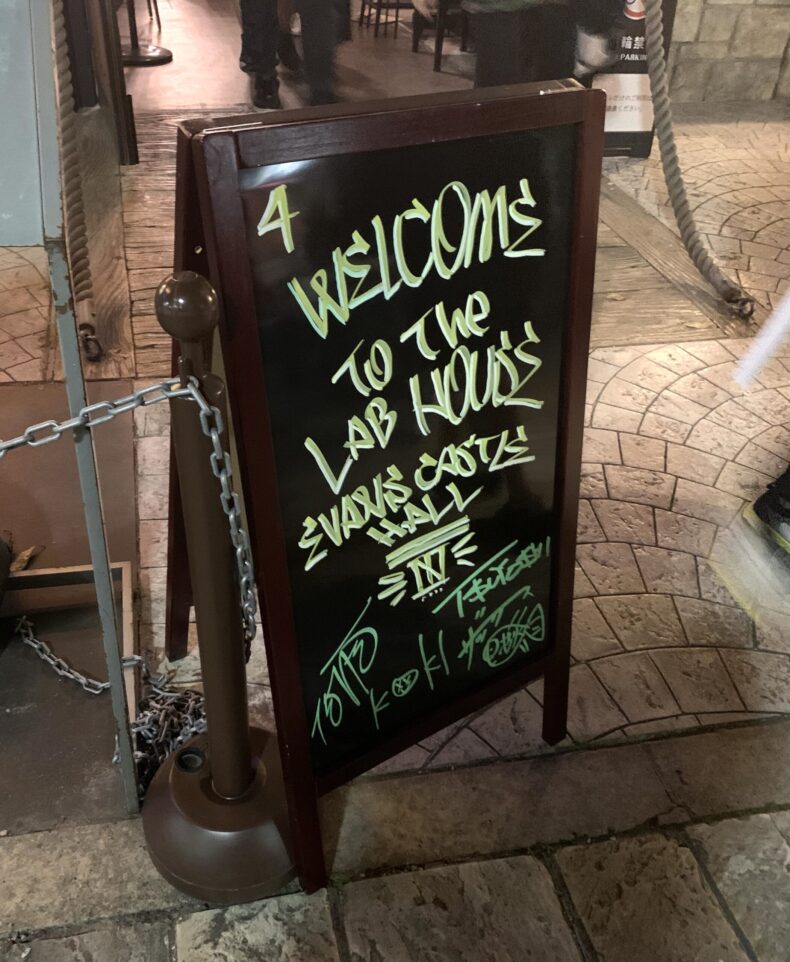 4
WELCOME
TO THE
LAB HOUSE
EVANS CASTLE
HALL
KOKI
輪禁
PARKIN